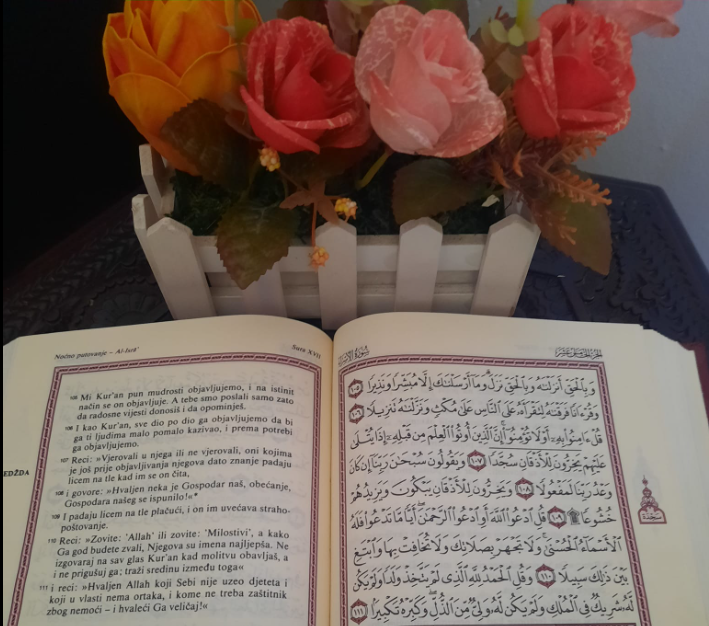 Noćno putovanje – Al-Isrā'
Sura XVII
105 Mi Kur'an pun mudrosti objavljujemo, i na istinit
način se on objavljuje. A tebe smo poslali samo zato
da radosne vijesti donosiš i da opominješ.
106 I kao Kur'an, sve dio po dio ga objavljujemo da bi
ga ti ljudima malo pomalo kazivao, i prema potrebi
ga objavljujemo.
107 Reci: »Vjerovali u njega ili ne vjerovali, oni kojima
je još prije objavljivanja njegova dato znanje padaju
licem na tle kad im se on čita,
EDŽDA
108 i govore: »Hvaljen neka je Gospodar naš, obećanje,
Gospodara našeg se ispunilo!«*
109 I padaju licem na tle plačući, i on im uvećava straho-
poštovanje.
110 Reci: »Zovite: 'Allah' ili zovite: 'Milostivi', a kako
Ga god budete zvali, Njegova su imena najljepša. Ne
izgovaraj na sav glas Kur'an kad molitvu obavljaš, a
i ne prigušuj ga; traži sredinu između toga«
111 i reci: »Hvaljen Allah koji Sebi nije uzeo djeteta i
koji u vlasti nema ortaka, i kome ne treba zaštitnik
zbog nemoći – i hvaleći Ga veličaj!«
سُورَةُ الإِسْرَاءِ
الجزء الخامس عشر
وَبِٱلْحَقِّ أَنزَلْنَٰهُ وَبِٱلْحَقِّ نَزَلَ وَمَآ أَرْسَلْنَٰكَ إِلَّا مُبَشِّرًا وَنَذِيرًا ١٠٥
وَقُرْءَانًا فَرَقْنَٰهُ لِتَقْرَأَهُۥ عَلَى ٱلنَّاسِ عَلَىٰ مُكْثٍ وَنَزَّلْنَٰهُ تَنزِيلًا ١٠٦
قُلْ ءَامِنُوا۟ بِهِۦٓ أَوْ لَا تُؤْمِنُوٓا۟ إِنَّ ٱلَّذِينَ أُوتُوا۟ ٱلْعِلْمَ مِن قَبْلِهِۦٓ إِذَا يُتْلَىٰ
عَلَيْهِمْ يَخِرُّونَ لِلْأَذْقَانِ سُجَّدًا ١٠٧ وَيَقُولُونَ سُبْحَٰنَ رَبِّنَآ إِن كَانَ
وَعْدُ رَبِّنَا لَمَفْعُولًا ١٠٨ وَيَخِرُّونَ لِلْأَذْقَانِ يَبْكُونَ وَيَزِيدُهُمْ
خُشُوعًا ١٠٩ قُلِ ٱدْعُوا۟ ٱللَّهَ أَوِ ٱدْعُوا۟ ٱلرَّحْمَٰنَ أَيًّا مَّا تَدْعُوا۟ فَلَهُ
ٱلْأَسْمَآءُ ٱلْحُسْنَىٰ وَلَا تَجْهَرْ بِصَلَاتِكَ وَلَا تُخَافِتْ بِهَا وَٱبْتَغِ
بَيْنَ ذَٰلِكَ سَبِيلًا ١١٠ وَقُلِ ٱلْحَمْدُ لِلَّهِ ٱلَّذِى لَمْ يَتَّخِذْ وَلَدًا وَلَمْ يَكُن
لَّهُۥ شَرِيكٌ فِى ٱلْمُلْكِ وَلَمْ يَكُن لَّهُۥ وَلِىٌّ مِّنَ ٱلذُّلِّ وَكَبِّرْهُ تَكْبِيرًۢا ١١١
سجدة